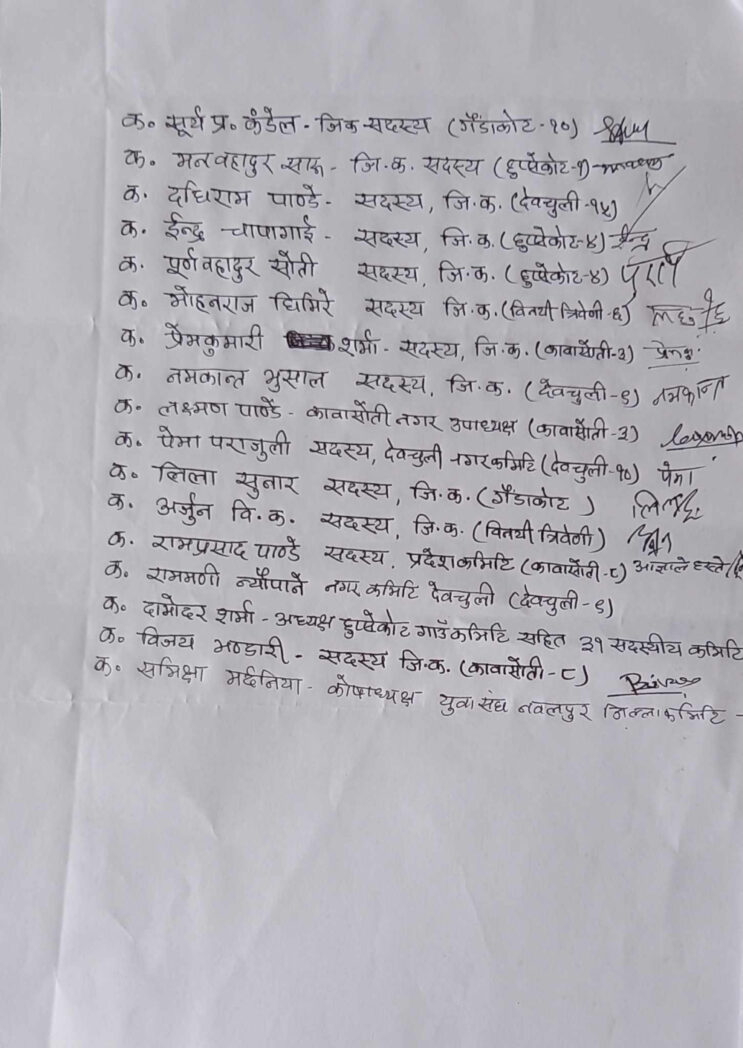 क. सूर्य प्र. कंडेल - जिक सदस्य (गैंडाकोट-१०)
क. मनवहादुर सारू - जि.क. सदस्य (हुप्सेकोट-१)
क. दधिराम पाण्डे - सदस्य, जि.क. (देवचुली-१५)
क. ईन्द्र चापागाई - सदस्य, जि.क. (हुप्सेकोट-४) ईन्द्र
क. पूर्णवहादुर सोती सदस्य, जि.क. (हुप्सेकोट-४) पूर्ण
क. मोहनराज घिमिरे सदस्य जि.क. (विनयी त्रिवेणी-६)
क. प्रेमकुमारी शर्मा - सदस्य, जि.क. (कावासोती-३)
क. नमकान्त भुसाल सदस्य, जि.क. (देवचुली-९) नमकान्त
क. लक्ष्मण पाण्डे - कावासोती नगर उपाध्यक्ष (कावासोती-३)
क. पेमा पराजुली सदस्य, देवचुली नगरकमिटि (देवचुली-१०) पेमा
क. लिला सुनार सदस्य, जि.क. (गैंडाकोट )
क. अर्जुन वि.क. सदस्य, जि.क. (विनयी त्रिवेणी)
क. रामप्रसाद पाण्डे सदस्य, प्रदेशकमिटि (कावासोती-८)
क. राममणी न्यौपाने नगर कमिटि देवचुली (देवचुली-९)
क. दामोदर शर्मा - अध्यक्ष हुप्सेकोट गाउँकमिटि सहित ३१ सदस्यीय कमिटि
क. विजय भण्डारी - सदस्य जि.क. (कावासोती-८)
क. समिक्षा मर्दनिया - कोषाध्यक्ष युवा संघ नवलपुर जिल्लाकमिटि -